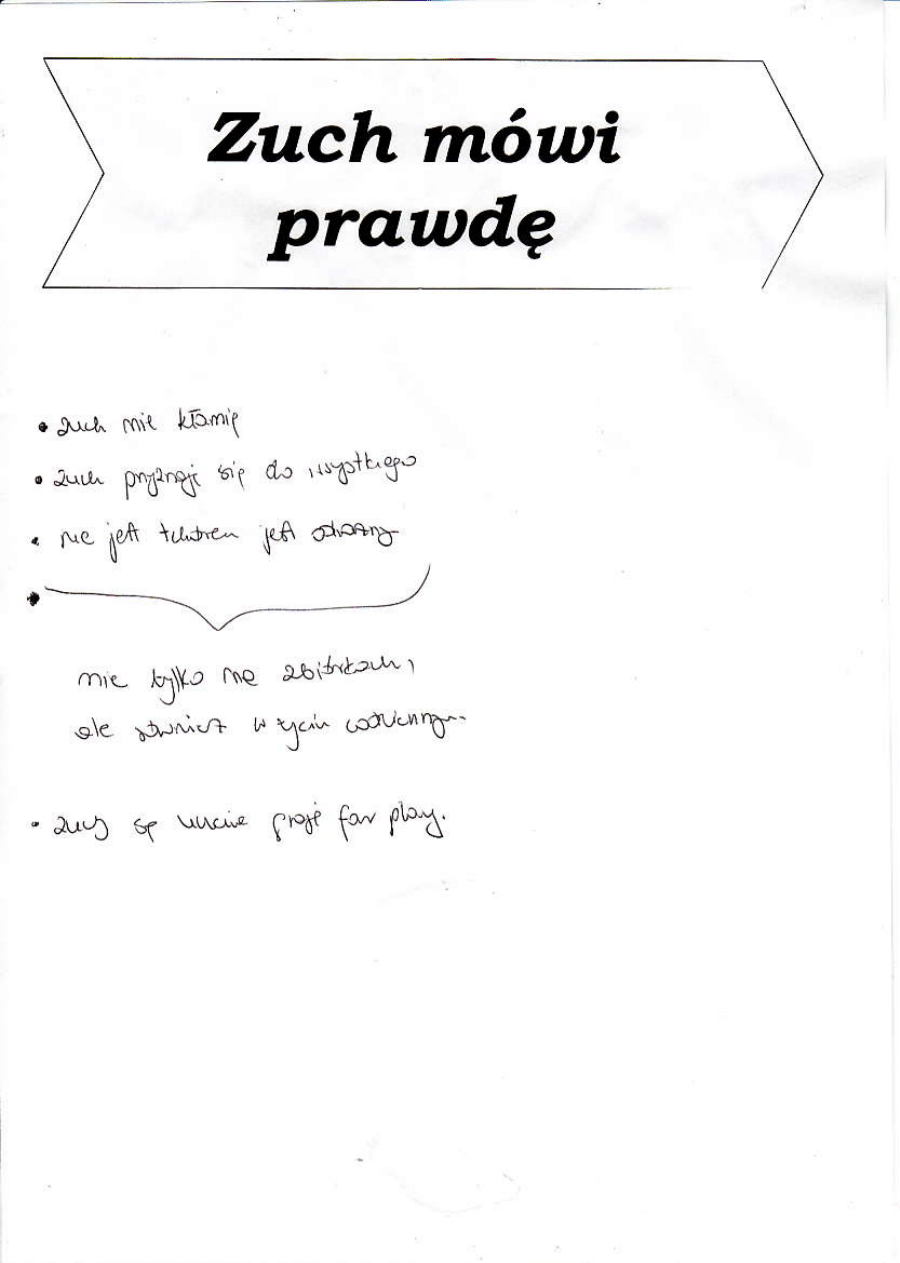 Zuch mówi
prawdę
• zuch nie kłamie
• zuch przyznaje się do wszystkiego
• nie jest tchórzem jest odważny
•
nie tylko na zbiórkach,
ale również w życiu codziennym
• zuchy są uczciwe grają fair play.